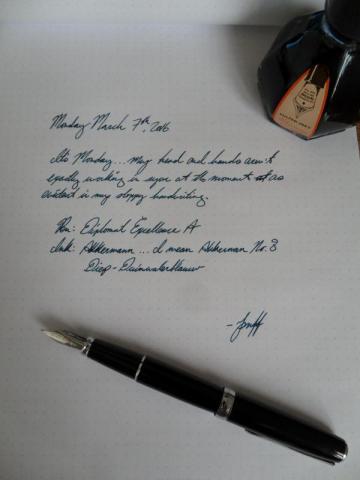 Monday March 7th, 2016
Its Monday... my head and hands aren't
exactly working in sync at the moment as
evident in my sloppy handwriting.
Pen: Diplomat Excellence A
Ink: Akkermann ... I mean Akkerman No. 8
Diep-Duinwaterblauw